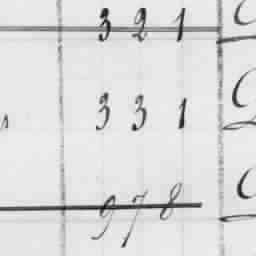 321
331
978